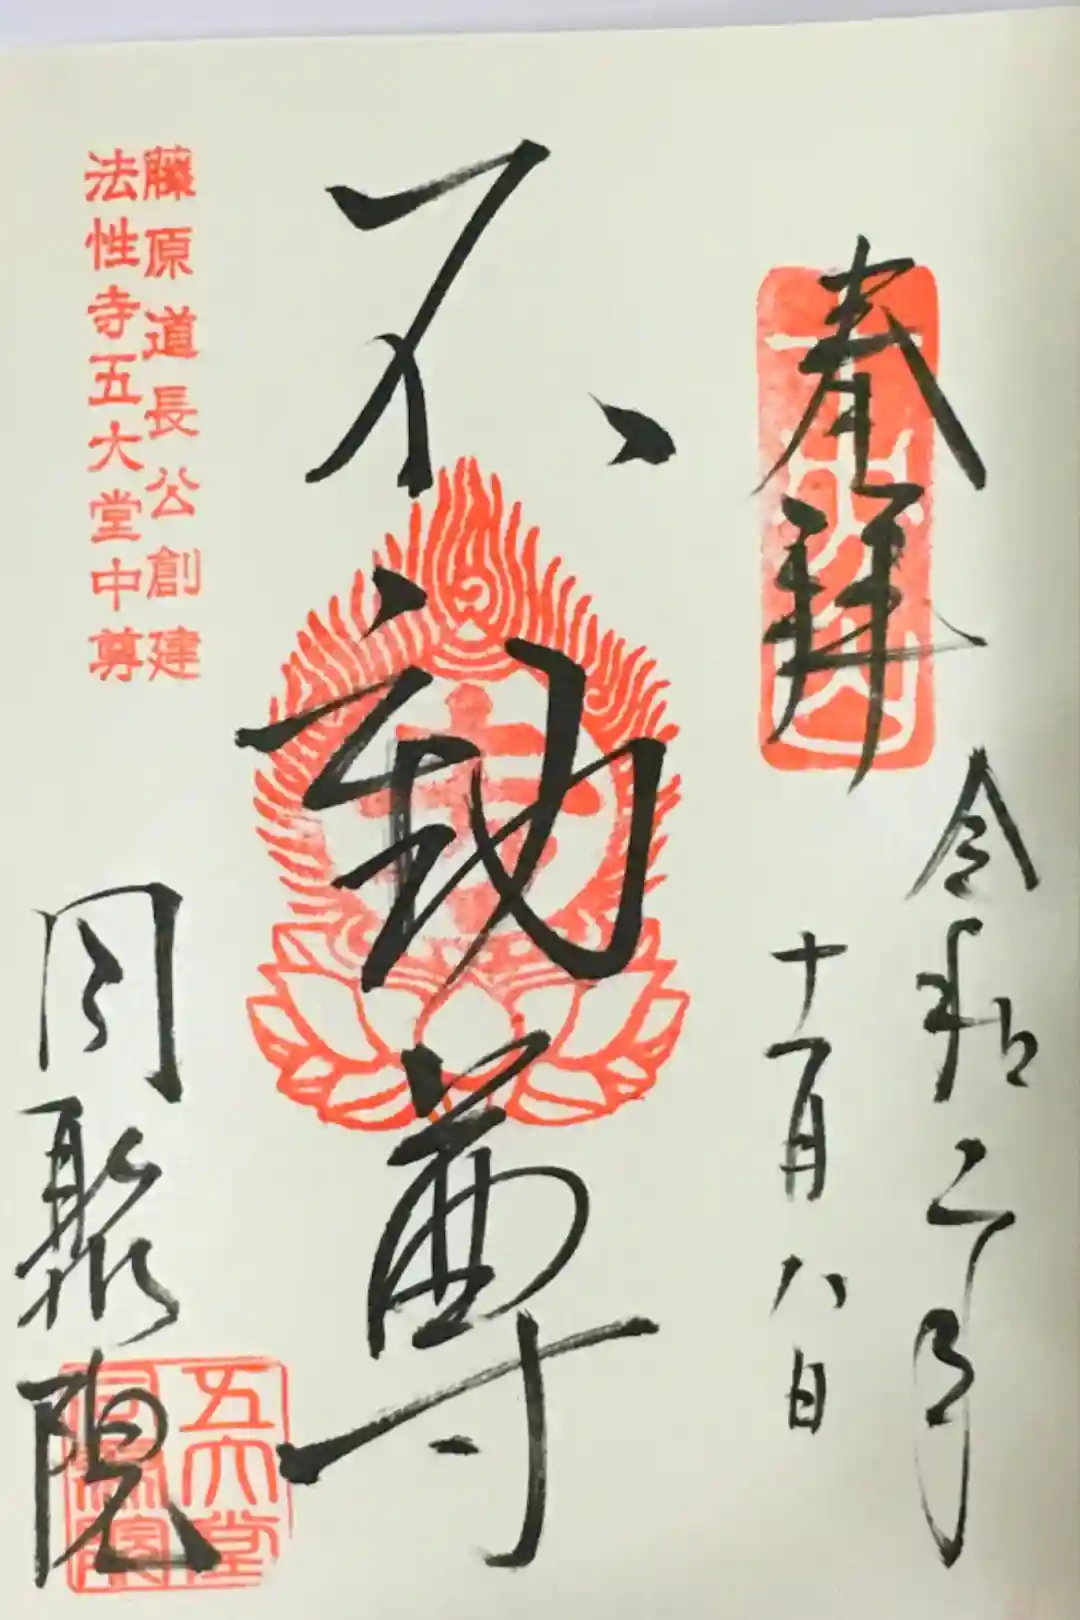 奉拝
令和二年
十一月八日
不動尊
藤原道長公創建
法性寺五大堂中尊
同聚院
五大堂
同聚院